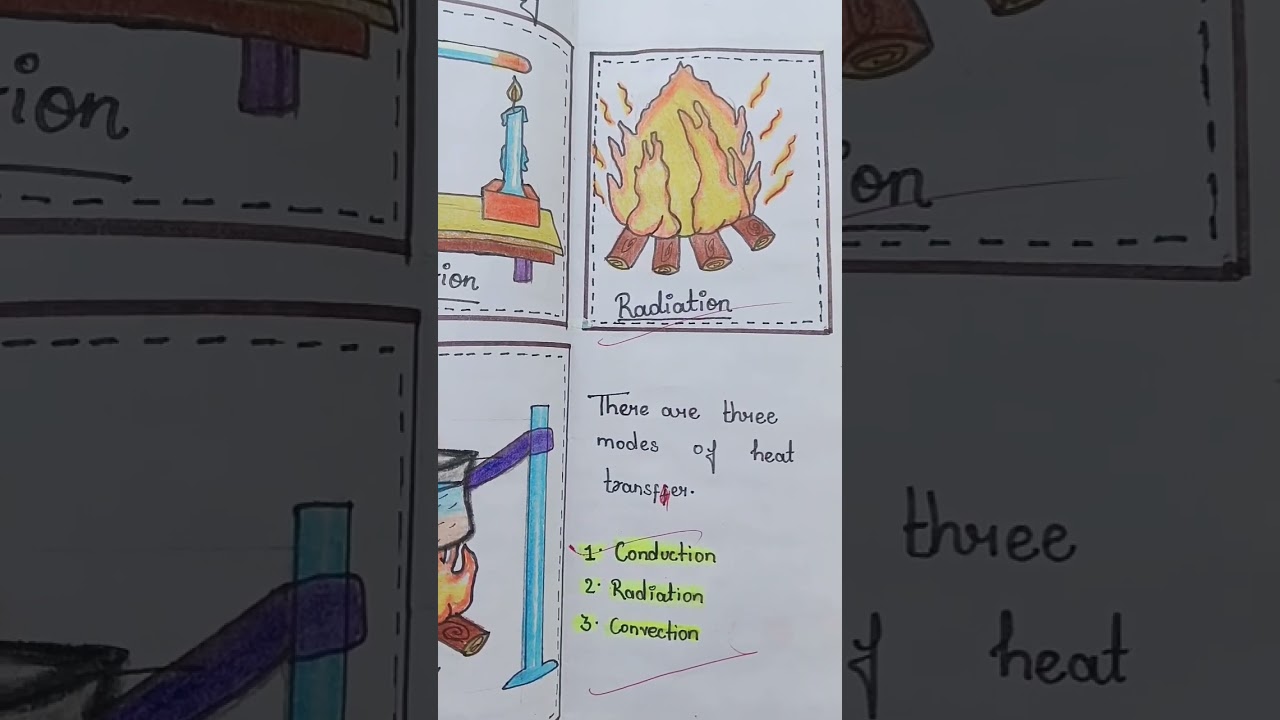 ion
Radiation
There are three
modes of heat
transfer.
1. Conduction
2. Radiation
3. Convection
ion
on
three
heat